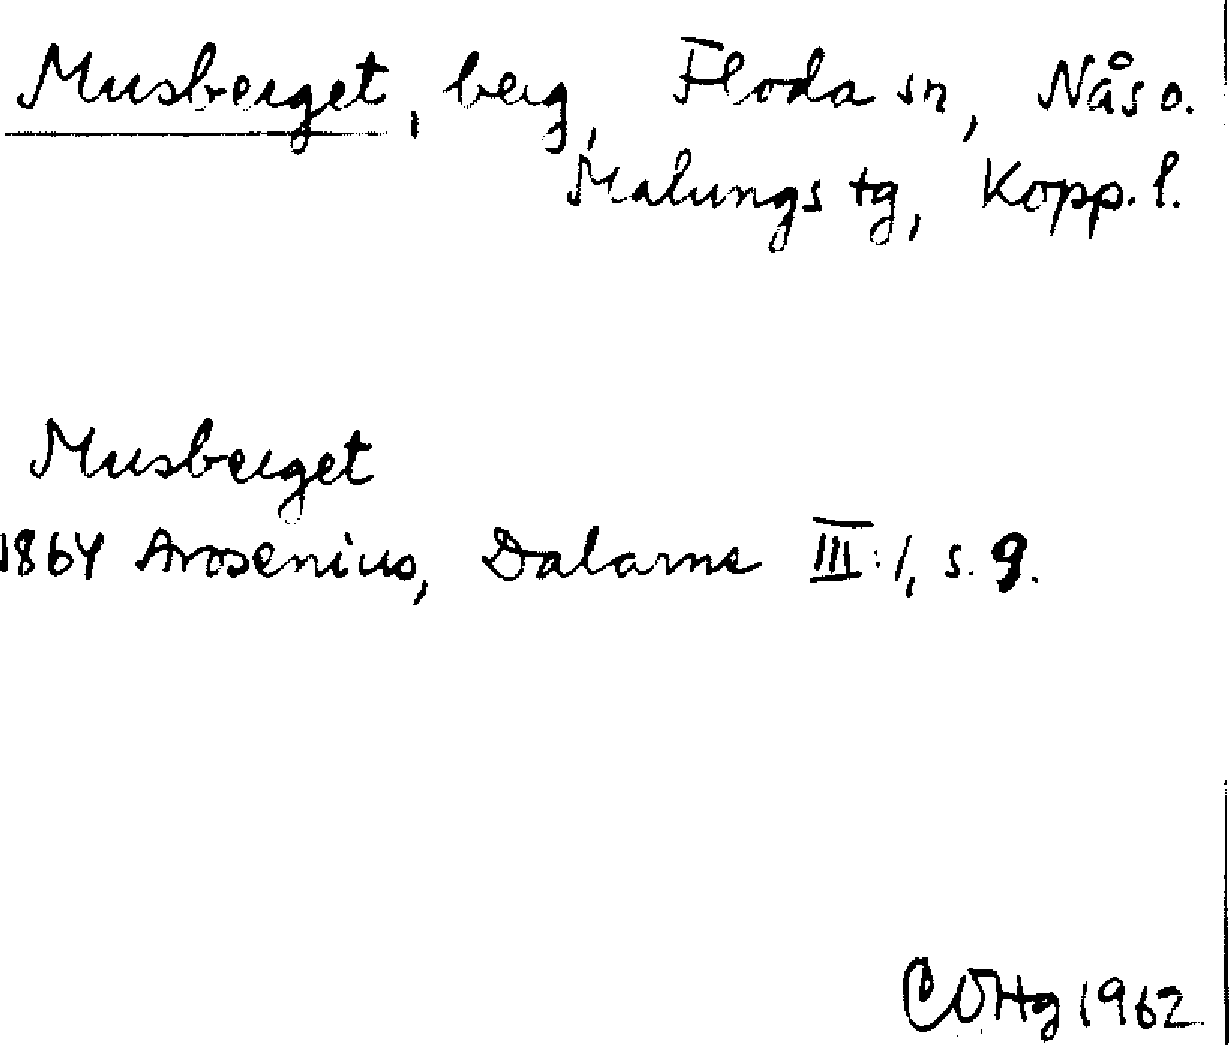 Musberget, berg, Floda sn, Nås o.
Malungs tg, Kopp. l.
Musberget
1864 Arosenius, Dalarne III:1, s. 9.
CÖHg 1962